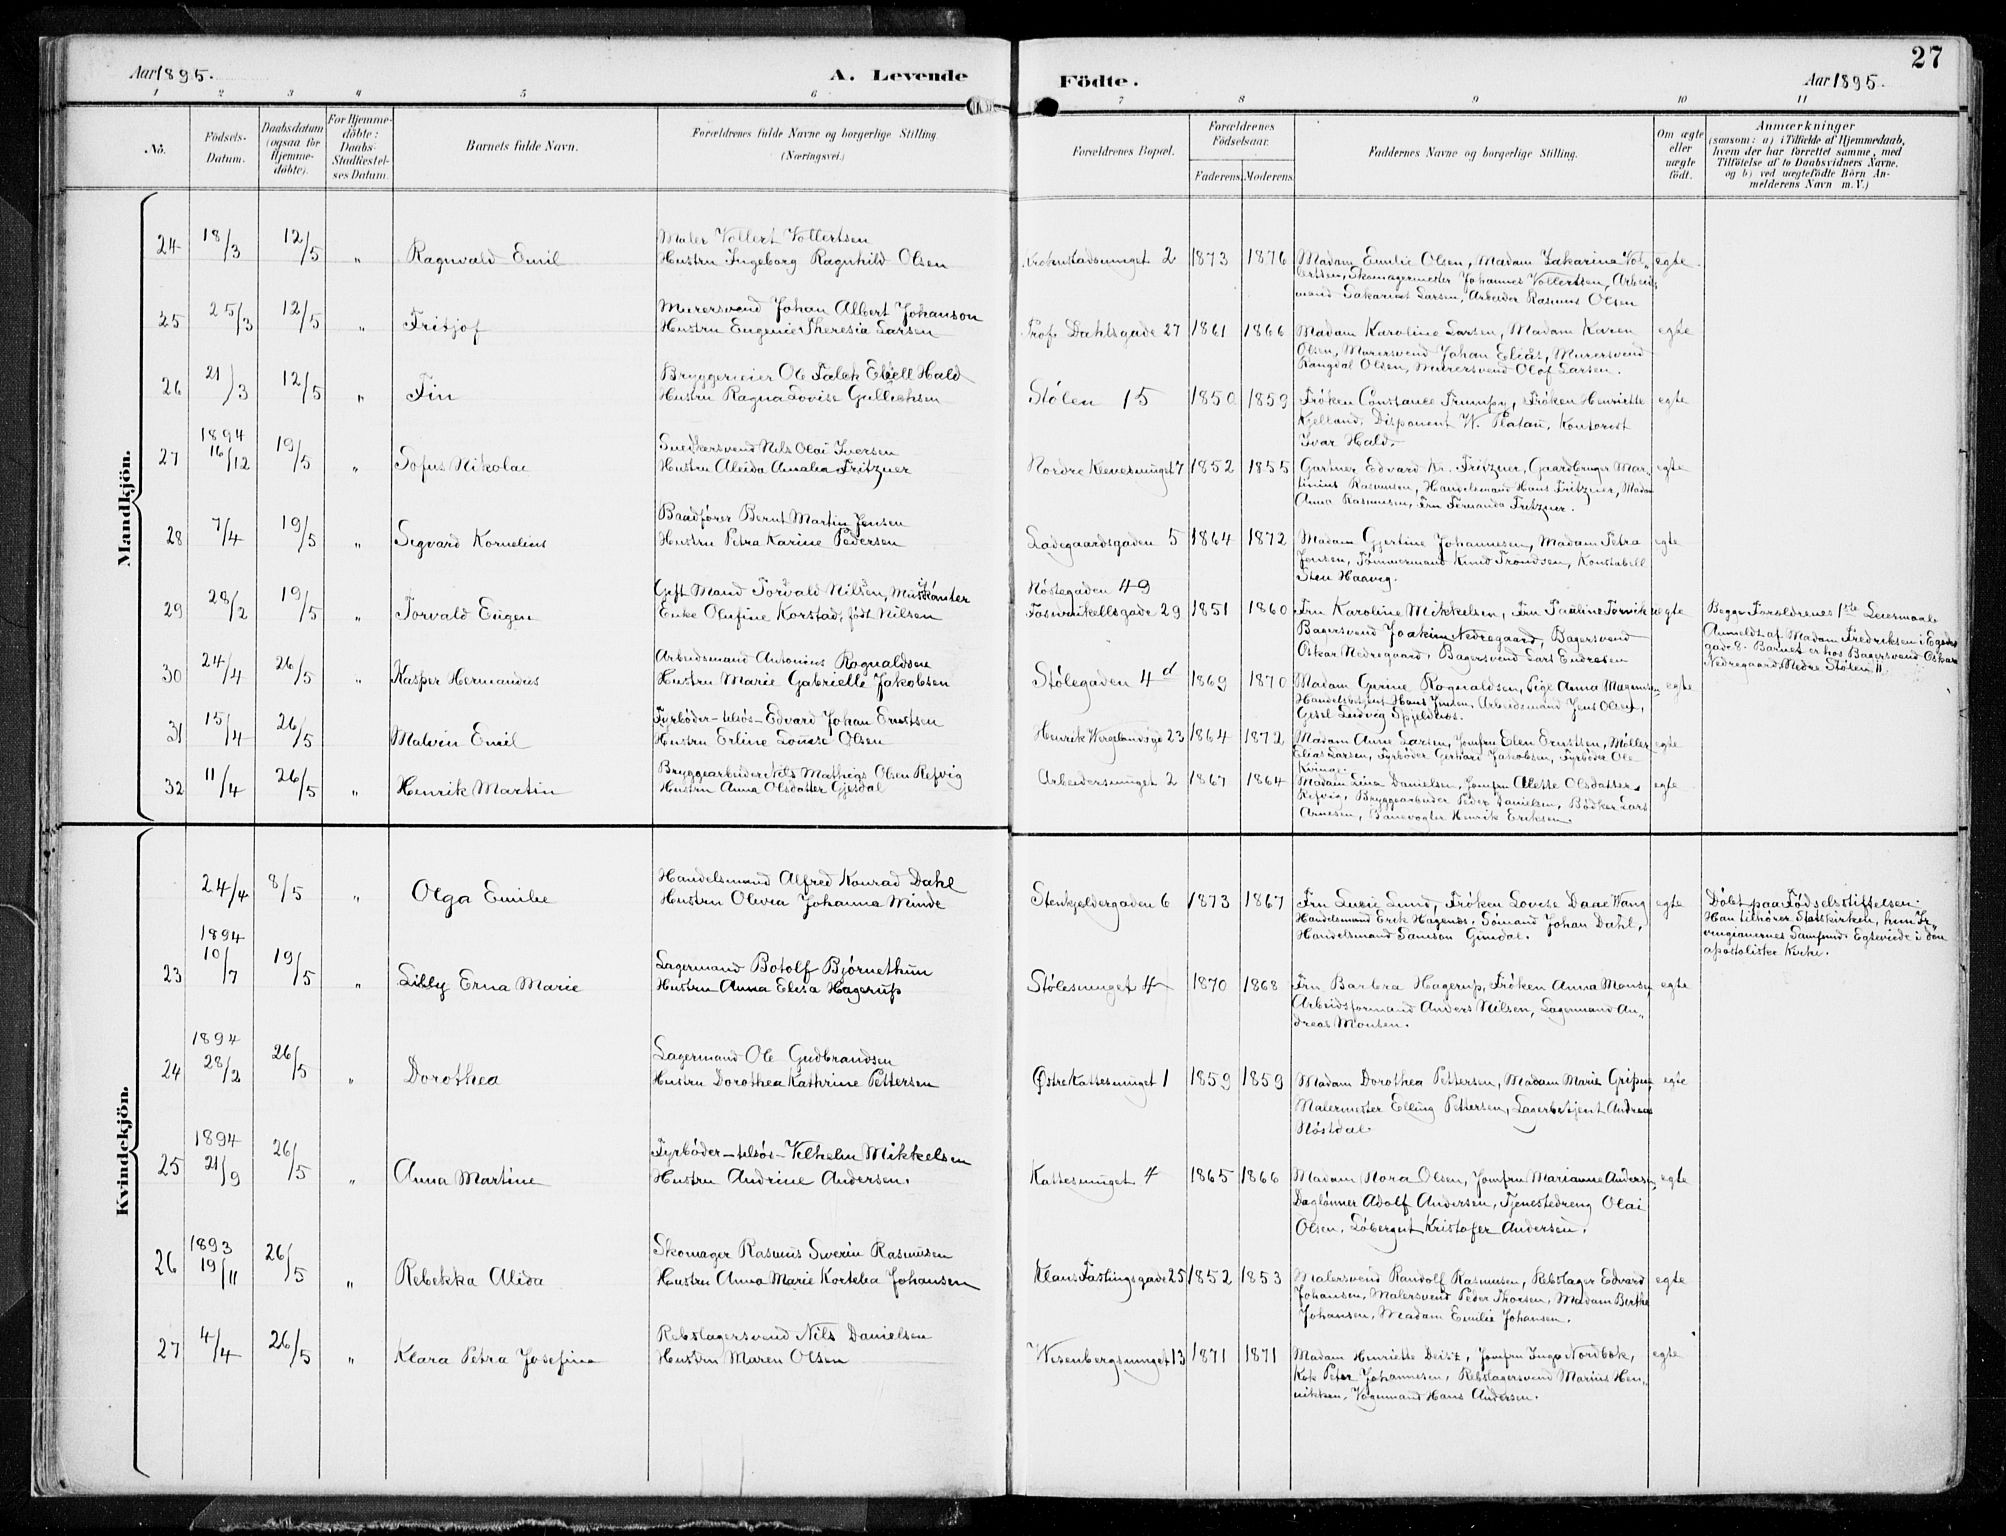 27
Aar 1895.
A. Levende
Födte.
Aar 1895.
1 2 3 4 5 6 7 8 9 10 11
No.
Födsels-
Datum.
Daabsdatum
(ogsaa for
Hjemme-
döbte).
For Hjemme-
döbte:
Daabs-
Stadfæstel-
ses Datum.
Barnets fulde Navn.
Forældrenes fulde Navne og borgerlige Stilling
(Næringsvei.)
Forældrenes Bopæl.
Forældrenes
Födselsaar.
Faderens. Moderens.
Faddernes Navne og borgerlige Stilling.
Om ægte
eller
uægte
födt.
Anmærkninger
(saasom: a) i Tilfælde af Hjemmedaab,
hvem der har forrettet samme, med
Tilföielse af to Daabsvidners Navne.
og b) ved uægtefödte Börn An-
melderens Navn m. V.)
Mandkjön.
24 18/3 12/5 " Ragnvald Emil
Maler Vollert Vollertsen
Hustru Ingeborg Ragnhild Olsen
Krohnstadsmuget 2 1873 1876
Madam Emilie Olsen, Madam Zakarina Vol-
lertsen, Skomagermester Johannes Vollertsen, Arbeids-
mand Sakarias Larsen, Arbeider Rasmus Olsen
egte
25 25/3 12/5 " Fritjof
Murersvend Johan Albert Johanson
Hustru Eugenie Theresia Larsen
Prof. Dahlsgade 27 1861 1866
Madam Karoline Larsen, Madam Karen
Olsen, Murersvend Johan Eliás, Murersvend
Rangdal Olsen, Murersvend Olof Larsen.
egte
26 21/3 12/5 " Fin
Bryggerieier Ole Falck Ebell Hald
Hustru Ragna Lovise Gullichsen
Stølen 15 1850 1859
Frøken Constance Trumpy, Frøken Henriette
Kjelland, Disponent W. Platau, Kontorist
Ivar Hald.
egte
27 1894 16/12 19/5 " Sofus Nikolai
Snedkersvend Nils Olai Iversen
Hustru Aleida Amalia Fritzner
Nordre Klevesmuget 7 1852 1855
Gartner Edvard Kr. Fritzner, Gaardbruger Mar-
tinius Rasmusen, Handelsmand Hans Fritzner, Madam
Anna Rasmusen, Fru Fernanda Fritzner.
egte
28 7/4 19/5 " Sigvard Kornelius
Baadfører Bernt Martin Jensen
Hustru Petra Karine Pedersen
Ladegaardsgaden 5 1864 1872
Madam Gjertine Johannesen, Madam Petra
Jensen, Tømmermand Knud Trondsen, Konstabell
Sten Haavig.
egte
29 28/2 19/5 " Torvald Eugen
Gift Mand Torvald Nilsen, Musikanter
Enke Olufine Korstad, født Nilsen
Nøstegaden 49
29 1851 1860
Fru Karoline Mikkelsen, Fru Pauline Torvik
Bagersvend Joakim Nedregaard, Bagersvend
Oskar Nedregaard, Bagersvend Lars Endresen
uegte
Begge Forældrenes 1ste Leiermaal.
Anmeldt af Madam Fredriksen i Egens
gade 8. Barnet er hos Bagersvend Oskar
Nedregaard, Nedre Stølen 11.
30 24/4 26/5 " Kasper Hermandus
Arbeidsmand Antonius Ragnaldsen
Hustru Marie Gabrielle Jakobsen
Stølegaden 4d 1869 1870
Madam Gurine Ragnaldsen, Pige Anna Magnusen
Handelsbetjent Hans Jensen, Arbeidsmand Jens Olsen,
Gesel Ludvig Spjeldnes.
egte
31 15/4 26/5 " Malvin Emil
Fyrbøder -tilsøs- Edvard Johan Erntsen
Hustru Erline Louise Olsen
Henrik Wergelandsgd 23 1864 1872
Madam Anne Larsen, Jomfru Elen Erntsen, Møller
Elias Larsen, Fyrbøder Gerhard Jakobsen, Fyrbøder Ole
Kvinge.
egte
32 11/4 26/5 " Henrik Martin
Bryggearbeider Nils Mathias Olsen Refvig
Hustru Anna Olsdatter Gjesdal
Arbeidersmuget 2 1867 1864
Madam Lina Danielsen, Jomfru Alette Olsdatter
Refvig, Bryggearbeider Peder Danielsen, Bødker Lars
Arnesen, Banevogter Henrik Eriksen.
egte
Kvindekjön.
24/4 8/5 " Olga Emilie
Handelsmand Alfred Konrad Dahl
Hustru Olivia Johanna Minde
Stenkjeldergaden 6 1873 1867
Fru Lucie Lund, Frøken Lovise Daae Wang
Handelsmand Erik Hagenæs, Sømand Johan Dahl,
Handelsmand Samson Gimdal.
egte
Døbt paa Fødselsstiftelsen.
Han tilhører Statskirken, hun Ir-
vingianernes Samfund. Egteviede i den
apostoliske Kirke.
23 1894 10/7 19/5 " Lilly Erna Marie
Lagermand Botolf Bjørnethun
Hustru Anna Elisa Hagerup
Stølesmuget 4 1870 1868
Fru Barbra Hagerup, Frøken Anna Monsen
Arbeidsformand Anders Nilsen, Lagermand An-
dreas Monsen.
egte
24 1894 28/2 26/5 " Dorothea
Lagermand Ole Gudbrandsen
Hustru Dorothea Kathrine Pettersen
Østre Kattesmuget 1 1859 1859
Madam Dorothea Pettersen, Madam Marie Gripne
Malermester Elling Pettersen, Lagerbetjent Andreas
Nøstdal.
egte
25 1894 21/9 26/5 " Anna Martine
Fyrbøder -tilsøs- Vilhelm Mikkelsen
Hustru Andrine Andersen.
Kattesmuget 4 1865 1866
Madam Nora Olsen, Jomfru Marianne Andersen
Daglønner Adolf Andersen, Tjenestedreng Olai
Olsen, Løbergut Kristofer Andersen.
egte
26 1893 19/11 26/5 " Rebekka Alida
Skomager Rasmus Severin Rasmusen
Hustru Anna Marie Kortelia Johansen
Klaus Fastingsgade 25 1852 1853
Malersvend Randolf Rasmusen, Rebslager Edvard
Johansen, Malersvend Peder Thorsen, Madam Berthe
Johansen, Madam Emilie Johansen.
egte
27 4/4 26/5 " Klara Petra Josefine
Rebslagersvend Nils Danielsen
Hustru Maren Olsen
Wesenbergsmuget 13 1871 1871
Madam Henriette Deisz, Jomfru Inga Nordbok,
Kok Peter Johannesen, Rebslagersvend Marius Hen-
nikken, Vognmand Hans Andersen.
egte